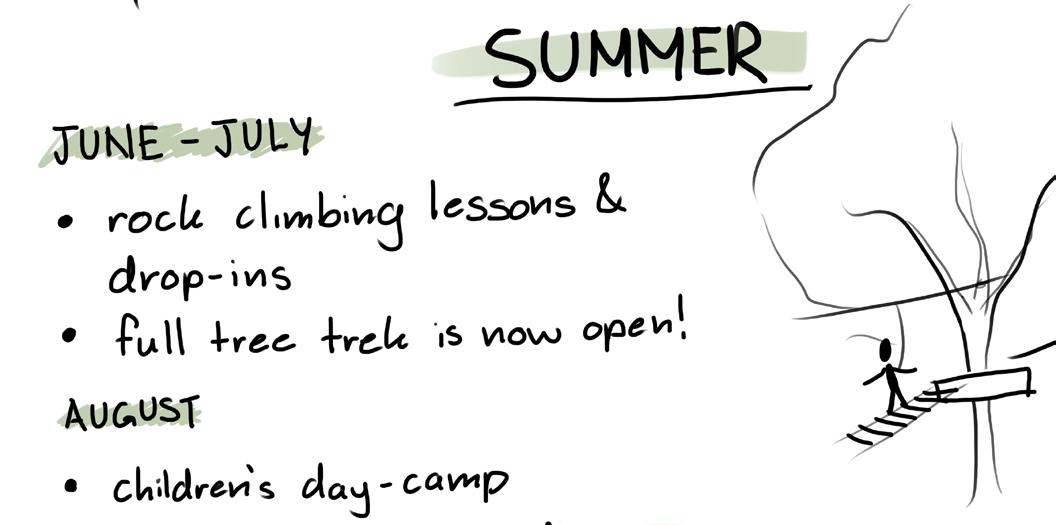 SUMMER
JUNE - JULY
• rock climbing lessons &
drop-ins
• full tree trek is now open!
AUGUST
• children's day-camp